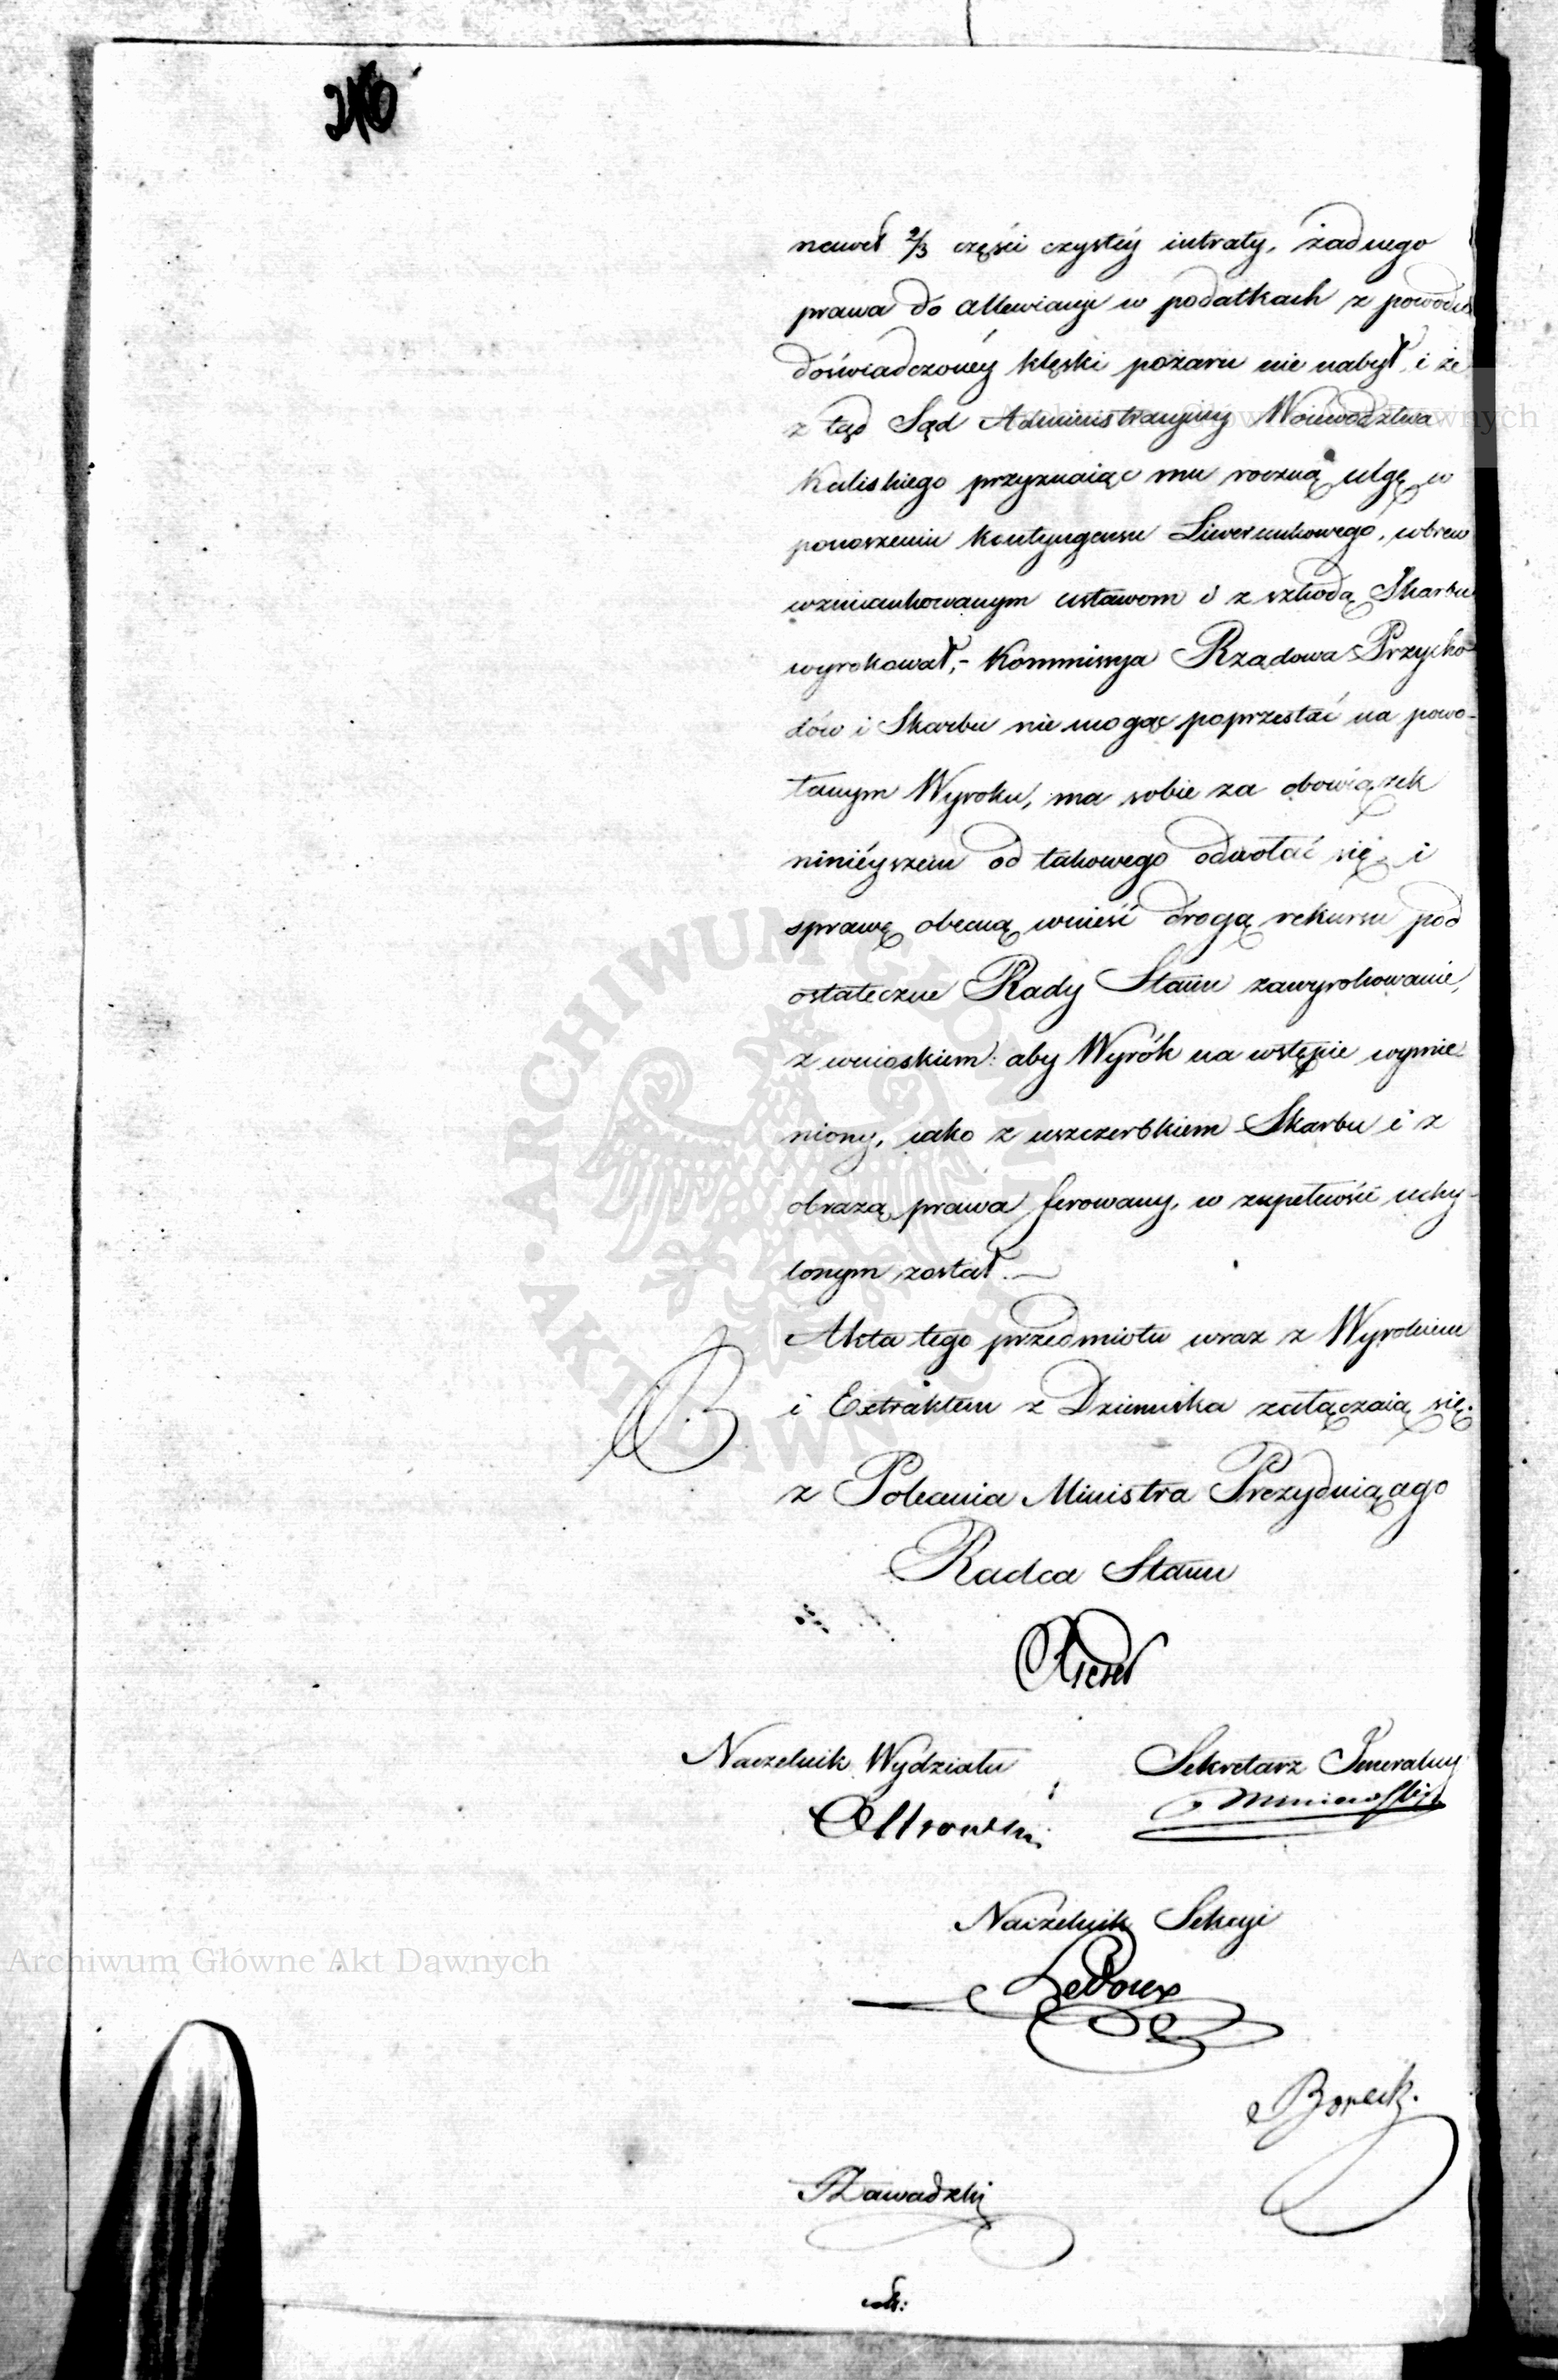 246
nawet 2/3 części czystéy intraty, żadnego
prawa do allewiacyi w podatkach z powodu
doświadczonéy klęski pożaru nie nabył, i że
z tąd Sąd Administracyiny Woiewództwa
Kaliskiego przyznaiąc mu roczną ulgę w
ponoszeniu kontyngensu Liwerunkowego, wbrew
wzmiankowanym ustawom i z szkodą Skarbu
wyrokował,- Kommissya Rządowa Przycho-
dów i Skarbu nie mogąc poprzestać na powo-
łanym Wyroku, ma sobie za obowiązek
ninieyszem od takowego odwołać się i
sprawę obecną wnieść drogą rekursu pod
ostateczne Rady Stanu zawyrokowanie,
z wnioskiem: aby Wyrók na wstępie wymie-
niony, iako z uszczerbkiem Skarbu i z
obrazą prawa ferowany, w zupełności uchy-
lonym został.
Akta tego przedmiotu wraz z Wyrokiem
i Extraktem z Dziennika załączaią się.
z Polecenia Ministra Prezyduiącego
Radca Stanu
Naczelnik Wydziału
Sekretarz Jeneralny
Naczelnik Sekcyi
Ledoux
Borecki
Zawadzki
ARCHIWUM GŁÓWNE AKT DAWNYCH
Archiwum Główne Akt Dawnych
Archiwum Główne Akt Dawnych